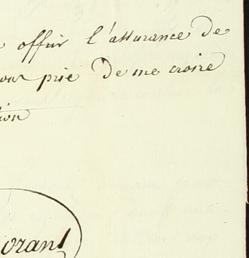 offrir l'assurance de
vous prie De me croire
tion
oran